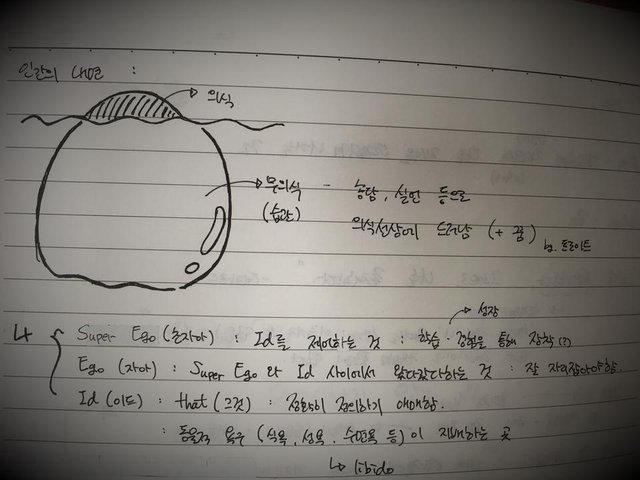 인간의 내면 :
→ 의식
→ 무의식 - 농담, 실언 등으로
(습관) 의식선상에 드러남 (+ 꿈) by. 프로이트
→ 성장
Super Ego (초자아) : Id를 제어하는 것 : 학습·경험을 통해 장착(?)
Ego (자아) : Super Ego 와 Id 사이에서 왔다갔다하는 것 : 잘 자리잡아야함.
Id (이드) : that (그것) : 정확히 정의하기 애매함.
: 동물적 욕구 (식욕, 성욕, 수면욕 등)이 지배하는 곳
↳ libido